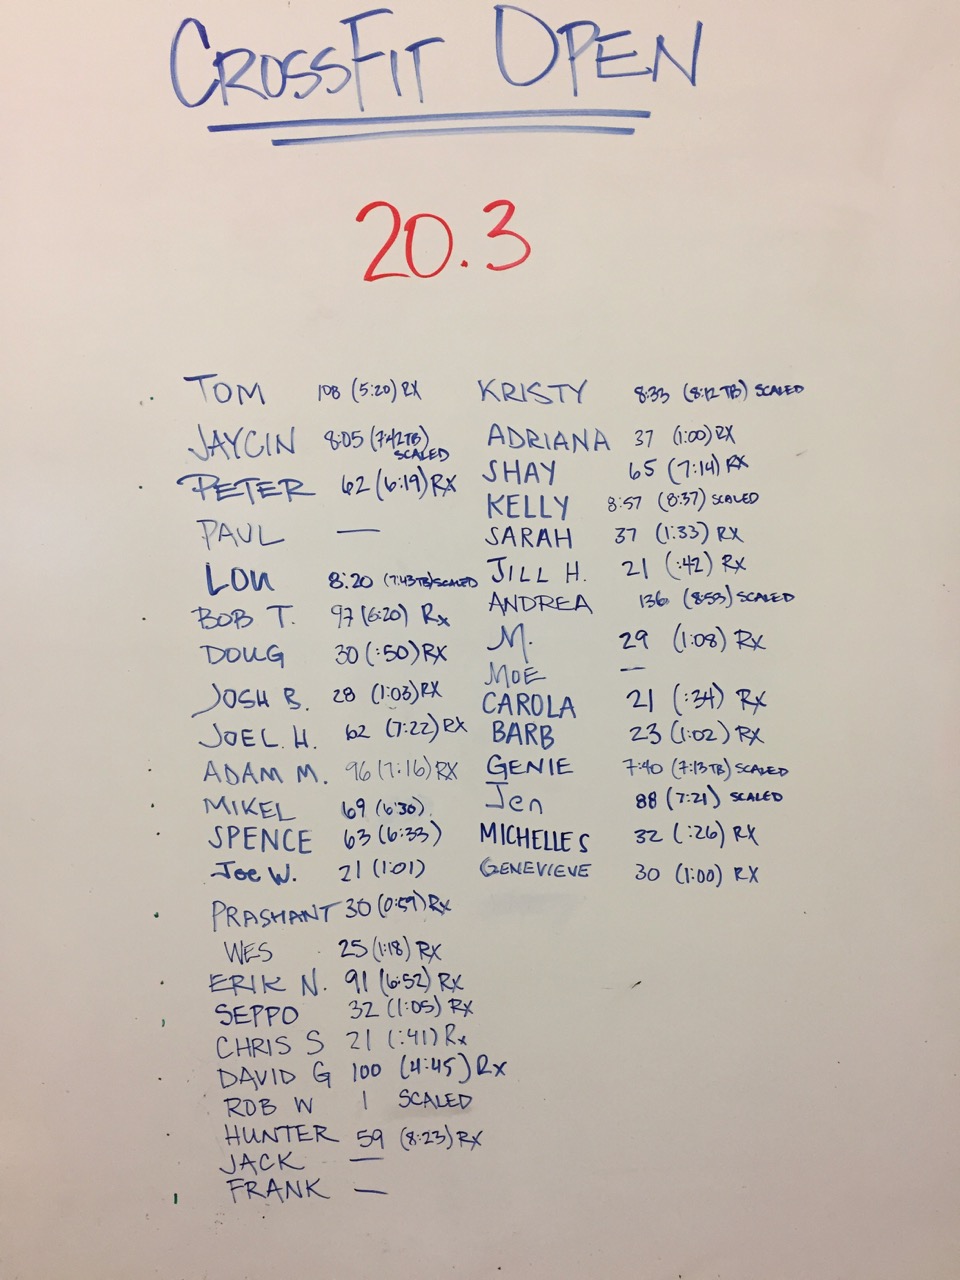 CROSSFIT OPEN
20.3
TOM 108 (5:20) RX
JAYCIN 8:05 (7:42TB) SCALED
PETER 62 (6:19) RX
PAUL —
LOU 8:20 (7:43TB) SCALED
BOB T. 97 (6:20) Rx
DOUG 30 (:50) RX
JOSH B. 28 (1:03) RX
JOEL H. 62 (7:22) RX
ADAM M. 96 (7:16) RX
MIKEL 69 (6:30)
SPENCE 63 (6:33)
Joe W. 21 (1:01)
PRASHANT 30 (0:59) Rx
WES 25 (1:18) Rx
ERIK N. 91 (6:52) Rx
SEPPO 32 (1:05) Rx
CHRIS S 21 (:41) Rx
DAVID G 100 (4:45) Rx
ROB W 1 SCALED
HUNTER 59 (8:23) RX
JACK —
FRANK —
KRISTY 8:33 (8:12 TB) SCALED
ADRIANA 37 (1:00) RX
SHAY 65 (7:14) RX
KELLY 8:57 (8:37) SCALED
SARAH 37 (1:33) RX
JILL H. 21 (:42) RX
ANDREA 136 (8:53) SCALED
M. 29 (1:08) RX
MOE —
CAROLA 21 (:34) RX
BARB 23 (1:02) RX
GENIE 7:40 (7:13TB) SCALED
Jen 88 (7:21) SCALED
MICHELLE S 32 (:26) RX
GENEVIEVE 30 (1:00) RX